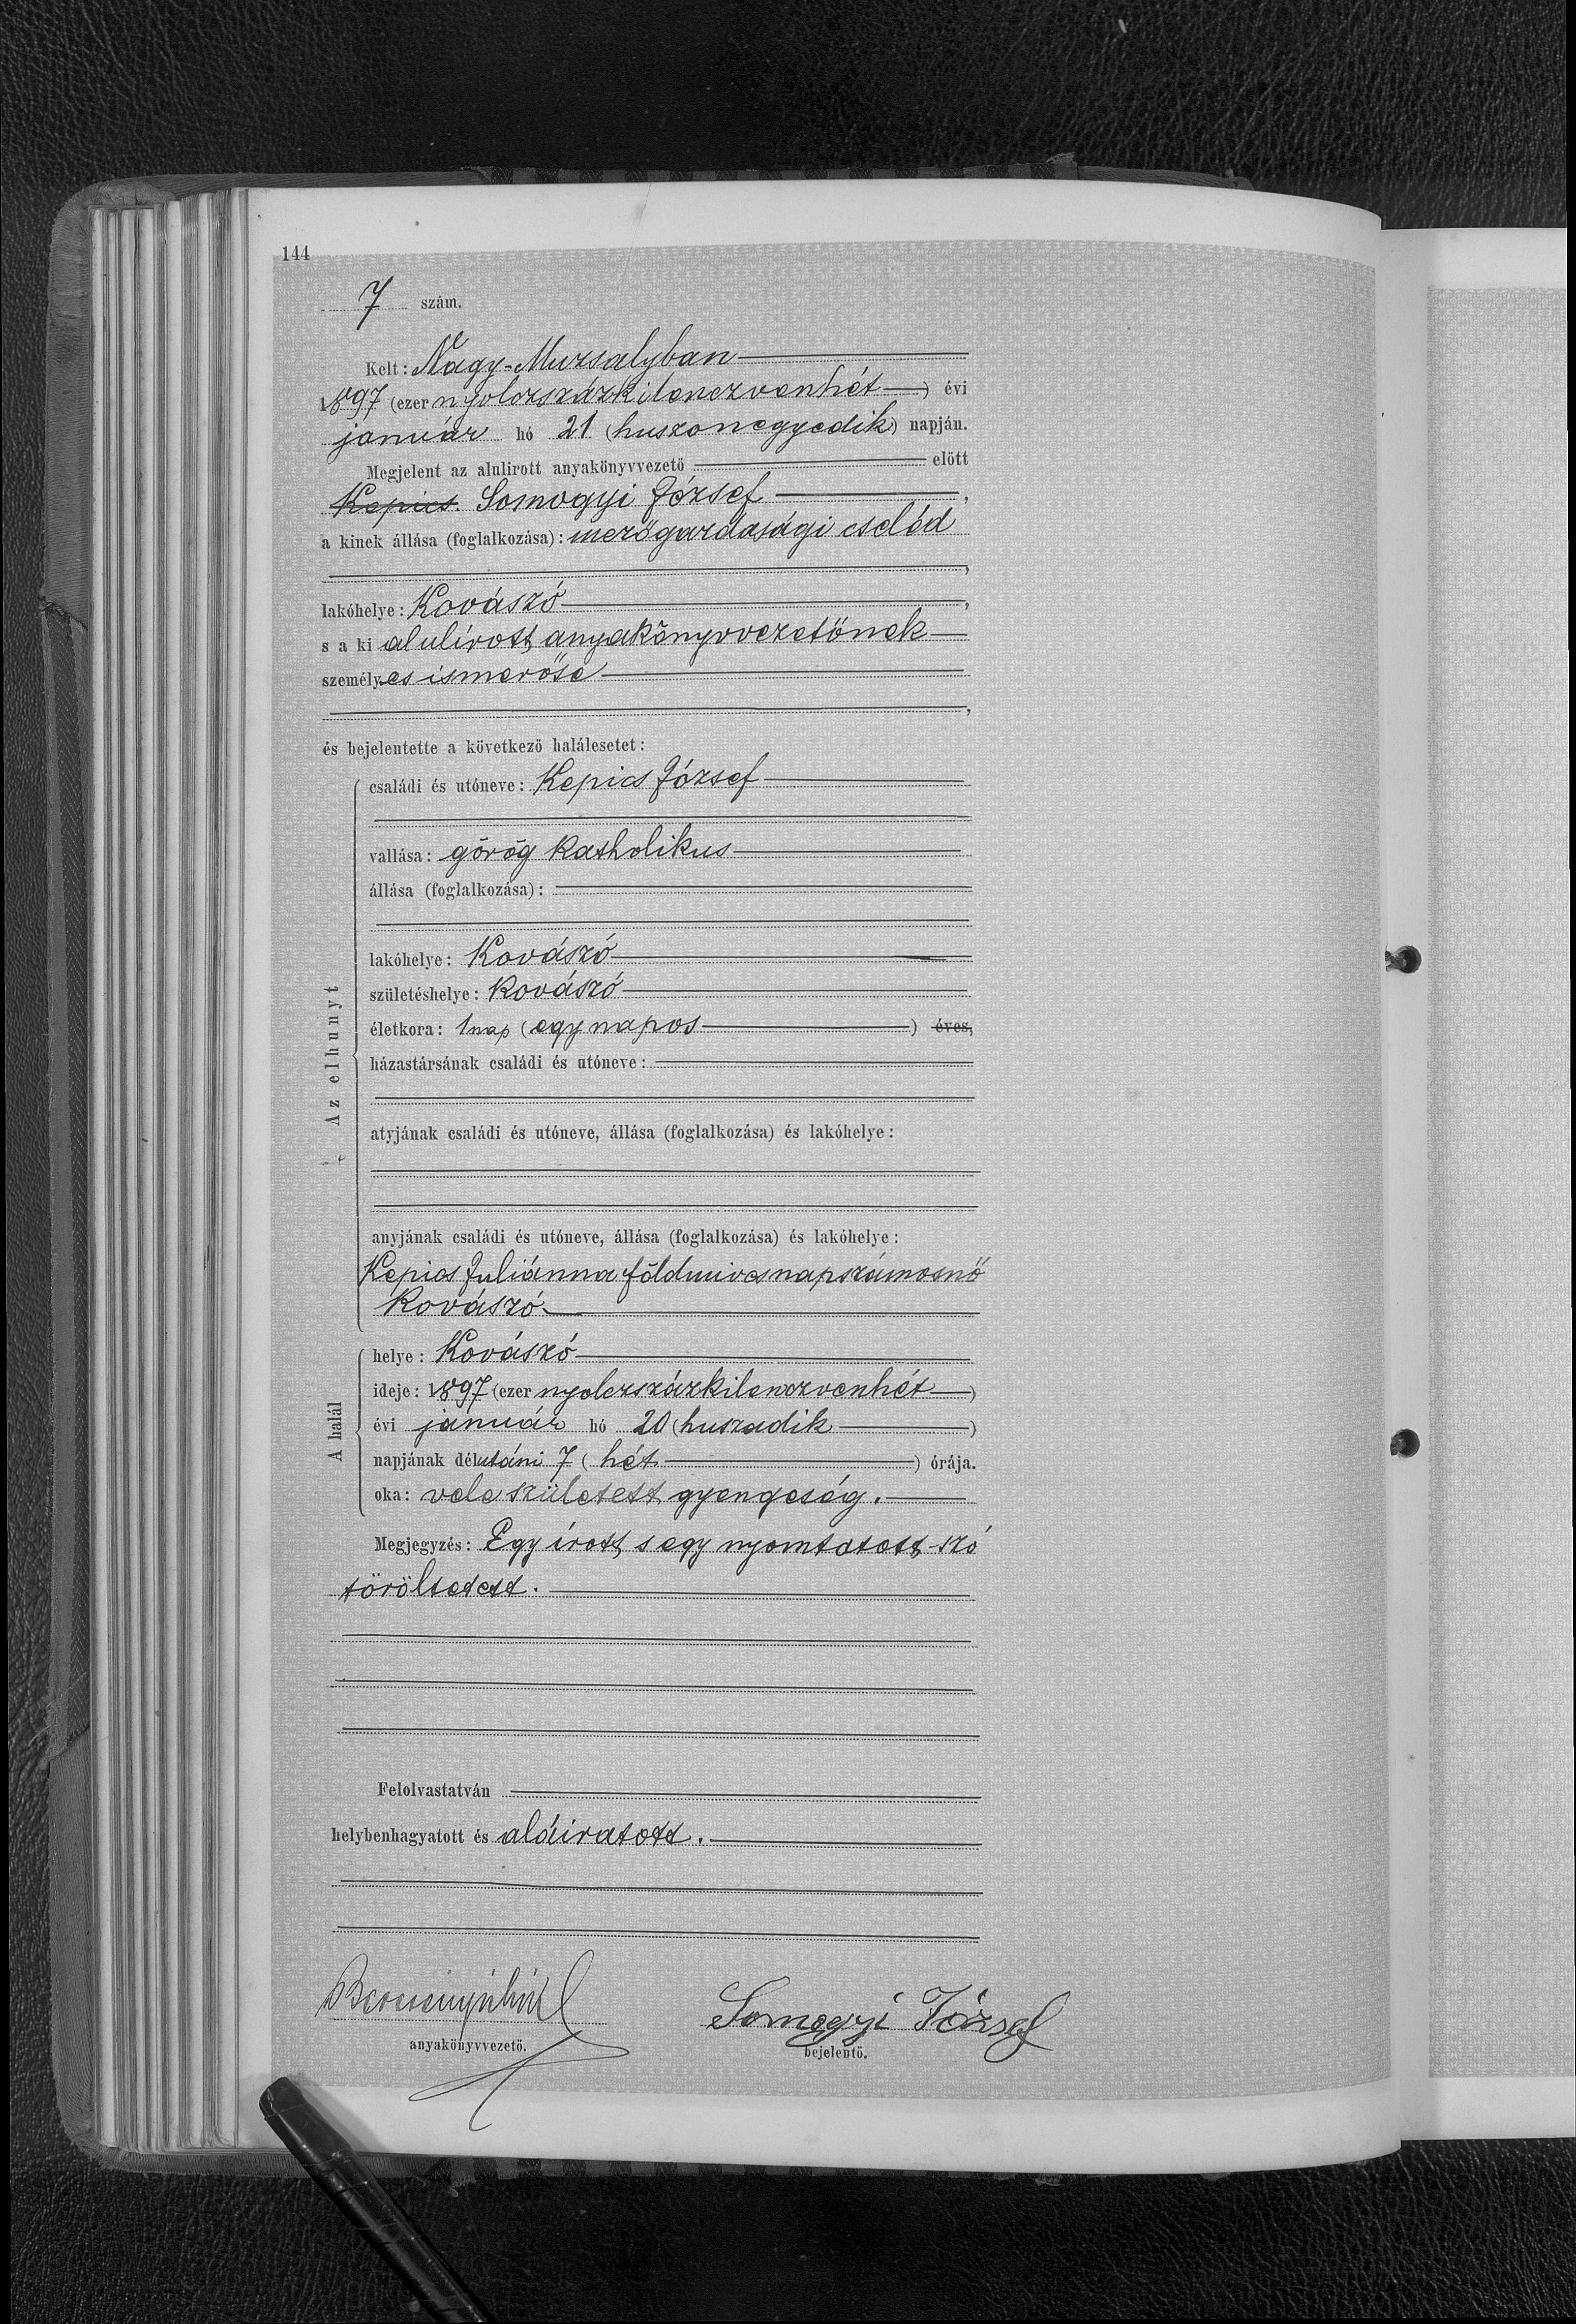 144
7 szám.
Kelt: Nagy-Muzsalyban
1897 (ezer nyolczszázkilenczvenhét) évi
január hó 21 (huszonegyedik) napján.
Megjelent az alulirott anyakönyvvezető előtt
Kepics. Somogyi József,
a kinek állása (foglalkozása): mezőgazdasági cseléd
,
lakóhelye: Kovászó,
s a ki alulírott anyakönyvvezetőnek
személyes ismerőse
,
és bejelentette a következő halálesetet:
Az elhunyt
családi és utóneve: Kepics József
vallása: görög katholikus
állása (foglalkozása):
lakóhelye: Kovászó
születéshelye: Kovászó
életkora: 1 nap (egy napos) éves,
házastársának családi és utóneve:
atyjának családi és utóneve, állása (foglalkozása) és lakóhelye:
anyjának családi és utóneve, állása (foglalkozása) és lakóhelye:
Kepics Juliánna földmives napszámosnő
Kovászó
A halál
helye: Kovászó
ideje: 1897 (ezer nyolczszázkilenczvenhét)
évi január hó 20 (huszadik)
napjának délutáni 7 (hét) órája.
oka: vele született gyengeség.
Megjegyzés: Egy írott s egy nyomtatott szó
töröltetett.
Felolvastatván
helybenhagyatott és aláiratott.
Somogyi József
anyakönyvvezető. bejelentő.